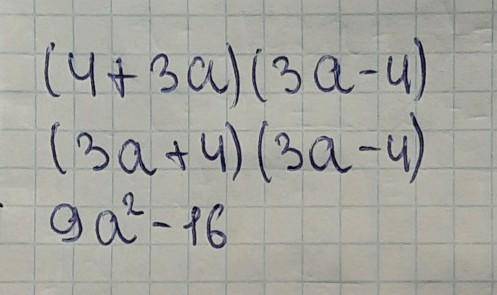 (4+3a)(3a-4)
(3a+4)(3a-4)
9a²-16